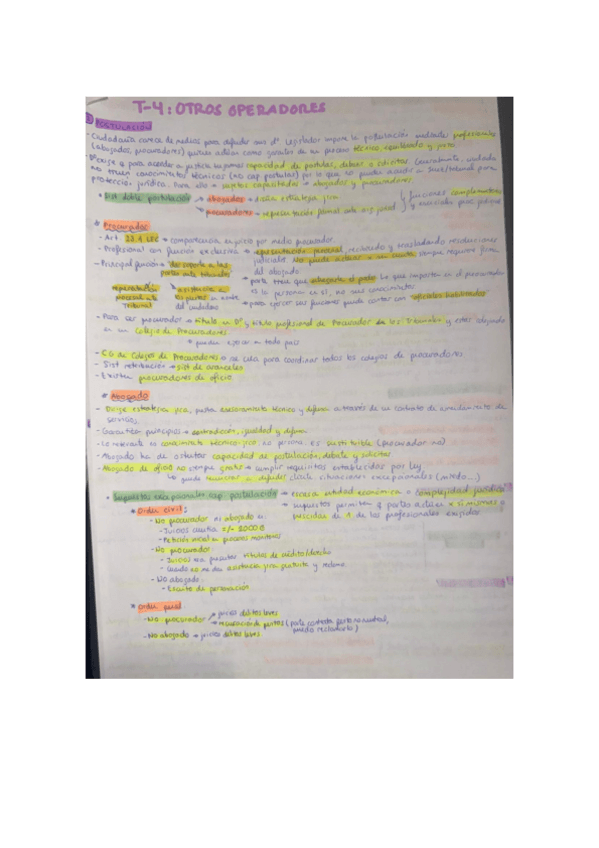 T-4: OTROS OPERADORES
POSTULACIÓN
- Ciudadanía carece de medios para defender sus dº. Legislador impone la postulación mediante profesionales
(abogados, procuradores) quienes actúan como garantes de un proceso técnico, equilibrado y justo.
- Exige q para acceder a justicia tengamos capacidad de postular, debatir o solicitar
no tienen conocimientos técnicos (no cap. postular) por lo que no pueden acceder a
protección jurídica. Para ello → sujetos capacitados → abogados y procuradores.
• Dist. doble postulación → abogados → lleva estrategia jca. funciones complementarias
→ procuradores → representación formal ante org. jurisd.
* Procurador
- Art. 23.1 LEC → comparecencia en juicio por medio procurador.
- Profesional con función exclusiva → representación procesal, recibiendo y trasladando resoluciones
judiciales. No puede actuar x su cuenta, siempre requiere firma
- Principal función → dar soporte a las partes ante tribunales del abogado
representación procesal ante Tribunal
asistencia a las partes en nombre del ciudadano
parte tiene que otorgarle el poder. Lo que importa en el procurador
es la persona en sí, no sus conocimientos
→ para ejercer sus funciones puede contar con oficiales habilitados
- Para ser procurador → título en Dº y título profesional de Procurador de los Tribunales y estar colegiado
en un Colegio de Procuradores.
→ pueden ejercer en todo país
- CG de Colegios de Procuradores → se crea para coordinar todos los colegios de procuradores
- Sist. retribución → sist. de aranceles.
- Existen procuradores de oficio.
* Abogado
- Dirige estrategia jca, presta asesoramiento técnico y defensa a través de un contrato de arrendamiento de
servicios.
- Garantiza principios → contradicción, igualdad y defensa.
- Lo relevante es conocimiento técnico-jco, no persona, es sustituible (procurador no)
- Abogado ha de ostentar capacidad de postulación, debate y solicitar
- Abogado de oficio no siempre gratis → cumplir requisitos establecidos por ley
↳ puede renunciar a defender desde situaciones excepcionales (miedo...)
• Supuestos excepcionales cap. postulación → escasa entidad económica o complejidad jurídica
→ supuestos permiten q partes actúen x sí mismas o
prescindan de 1 de los profesionales exigidos
* Orden civil:
- No procurador ni abogado en
- Juicios cuantía +/- 2000 €
- Petición inicial en procesos monitorios
- No procurador
- Juicios con presenten títulos de crédito/derecho
- Cuando se me da asistencia jca gratuita y reclamo.
- No abogado
- Escrito de personación
* Orden penal
- No procurador → juicios delitos leves
→ recusación de peritos
- No abogado → juicios delitos leves.